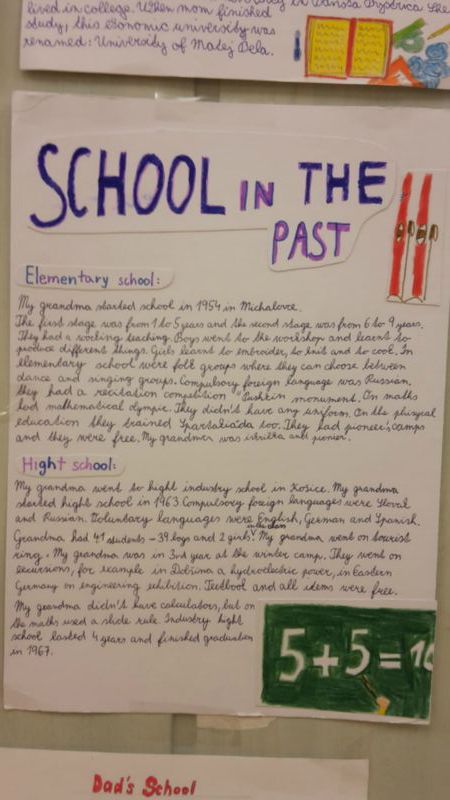 lived in college. When mom finished
study, this economic university was
renamed: University of Matej Bela.
SCHOOL IN THE
PAST
Elementary school:
My grandma started school in 1954 in Michalovce.
The first stage was from 1 to 5 years and the second stage was from 6 to 9 years.
They had a working teaching. Boys went to the workshop and learnt to
produce different things. Girls learnt to embroider, to knit and to cool. In
elementary school were folk groups where they can choose between
dance and singing groups. Compulsory foreign language was Russian.
They had a recitation competition Pushkin monument. On maths
had mathematical olympic. They didn't have any uniform. On the phisycal
education they trained Spartakiáda too. They had pioneer's camps
and they were free. My grandmer was iskritka and pionier.
Hight school:
My grandma went to hight industry school in Košice. My grandma
started hight school in 1963. Compulsory foreign languages were Slovak
and Russian. Voluntary languages were English, German and Spanish.
Grandma had 41 students - 39 boys and 2 girls in the class. My grandma went on tourist
ring. My grandma was in 3rd year at the winter camp. They went on
excursions, for example in Dobšina a hydroelectric power, in Eastern
Germany on engineering exhibition. Textbook and all idems were free.
My grandma didn't have calculators, but on
the maths used a slide rule. Industry hight
school lasted 4 years and finished graduation
in 1967.
5+5=10
Dad's School